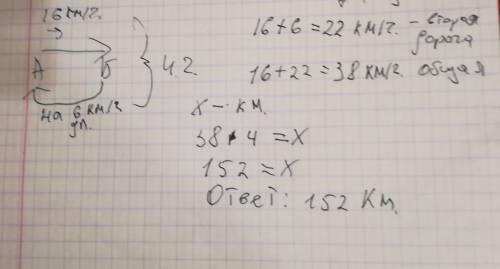 16 км/ч.
А Б
4 ч.
на 6 км/ч
дл.
16 + 6 = 22 км/ч. - вторая
дорога
16 + 22 = 38 км/ч. общая
х - км.
38 · 4 = х
152 = х
Ответ: 152 км.